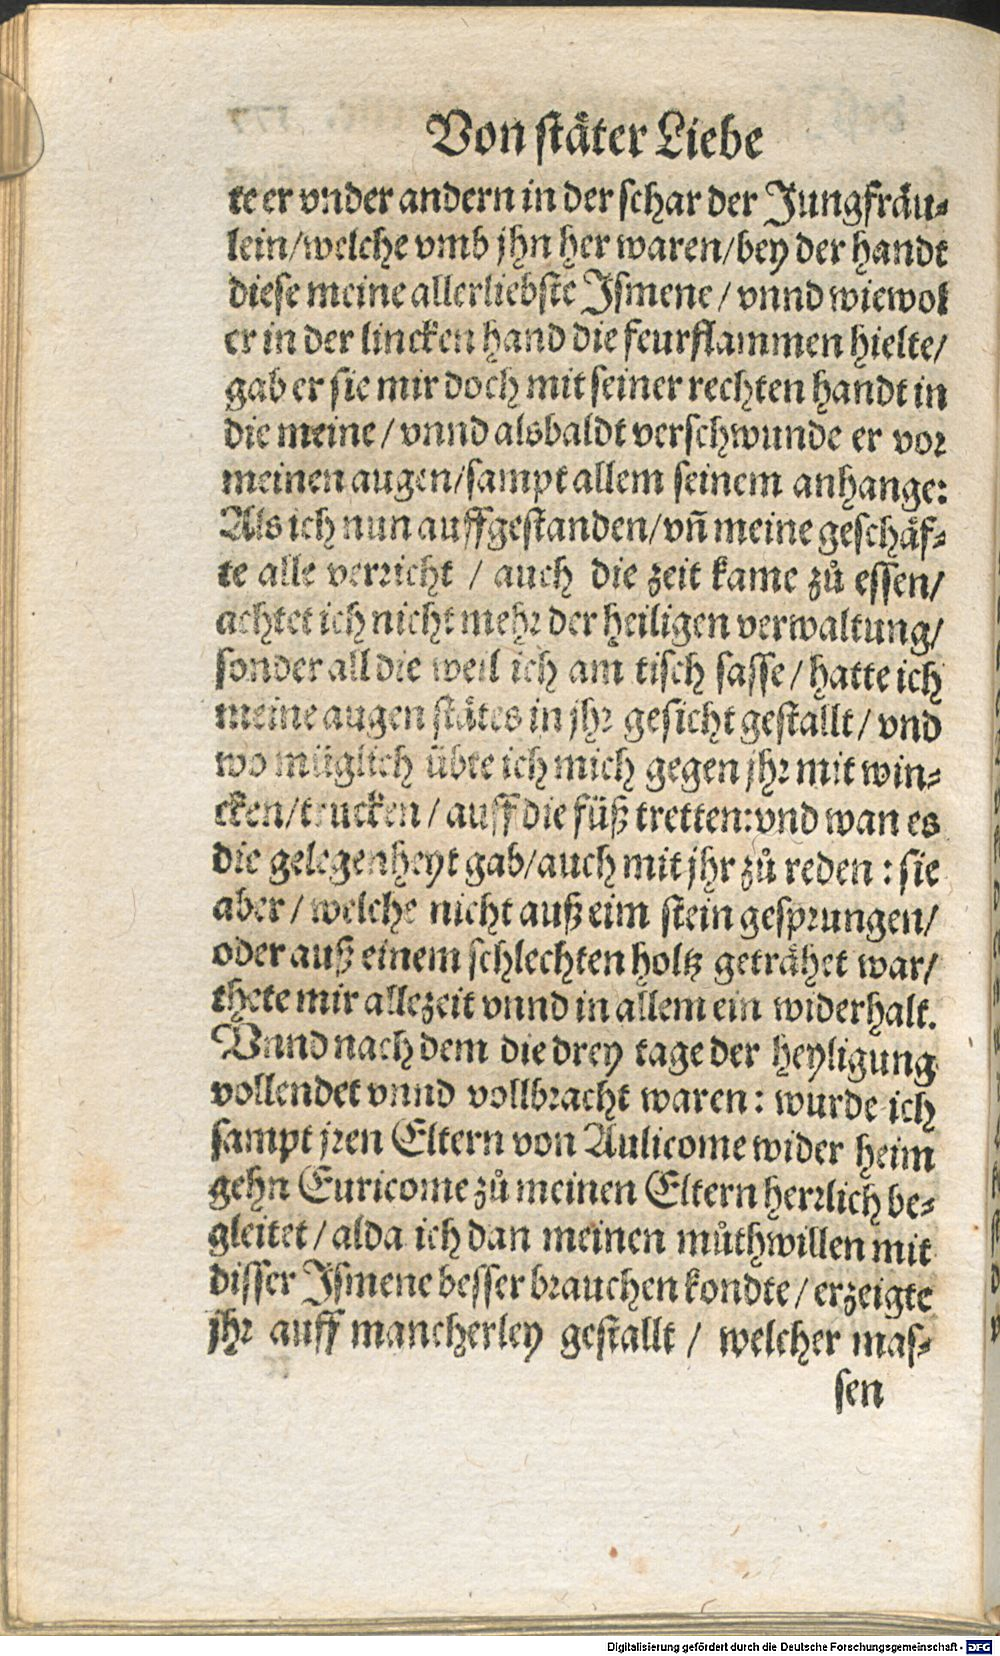 Von ſtäter Liebe
te er vnder andern in der ſchar der Jungfräu⸗
lein/welche vmb jhn her waren/bey der handt
dieſe meine allerliebſte Iſmene/ vnnd wiewol
er in der lincken hand die feurflammen hielte/
gab er ſie mir doch mit ſeiner rechten handt in
die meine/ vnnd alsbaldt verſchwunde er vor
meinen augen/ſampt allem ſeinem anhange:
Als ich nun auffgeſtanden/vñ meine geſchäf⸗
te alle verricht / auch die zeit kame zů eſſen/
achtet ich nicht mehr der heiligen verwaltung/
ſonder all die weil ich am tiſch ſaſſe/ hatte ich
meine augen ſtätes in jhr geſicht geſtallt/ vnd
wo müglich übte ich mich gegen jhr mit win⸗
cken/trucken/ auff die füß tretten:vnd wan es
die gelegenheyt gab/auch mit jhr zů reden: ſie
aber/ welche nicht auß eim ſtein geſprungen/
oder auß einem ſchlechten holtz geträhet war/
thete mir allezeit vnnd in allem ein widerhalt.
Vnnd nach dem die drey tage der heyligung
vollendet vnnd vollbracht waren: wurde ich
ſampt jren Eltern von Aulicome wider heim
gehn Euricome zů meinen Eltern herrlich be⸗
gleitet/ alda ich dan meinen můthwillen mit
diſſer Iſmene beſſer brauchen kondte/ erzeigte
jhr auff mancherley geſtallt / welcher maſ⸗
ſen
Digitalisierung gefördert durch die Deutsche Forschungsgemeinschaft - DFG